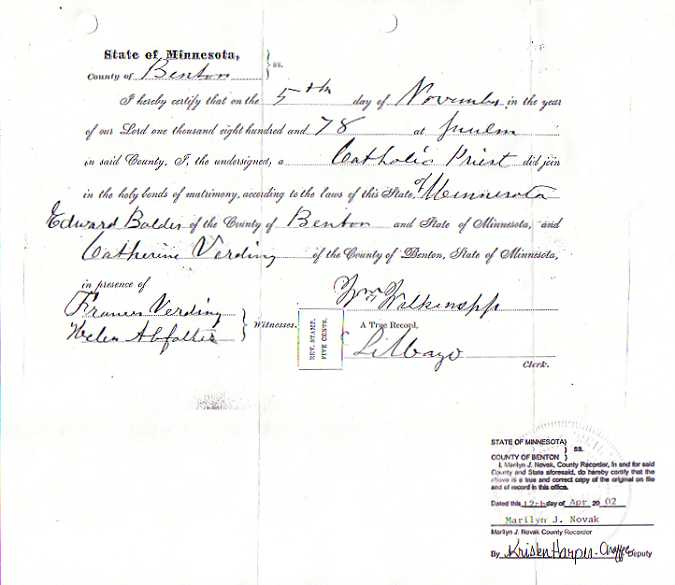 State of Minnesota,
County of Benton } ss.
I hereby certify that on the 5th day of November in the year
of our Lord one thousand eight hundred and 78 at
in said County, I, the undersigned, a Catholic Priest did join
in the holy bonds of matrimony, according to the laws of this State, of Minnesota
Edward Balder of the County of Benton and State of Minnesota, and
Catherine Verding of the County of Benton, State of Minnesota,
in presence of
Frances Verding
Helen } Witnesses.
REV. STAMP.
FIVE CENTS.
Wm
A True Record,
Clerk.
STATE OF MINNESOTA)
) ss.
COUNTY OF BENTON )
I, Marilyn J. Novak, County Recorder, in and for said
County and State aforesaid, do hereby certify that the
above is a true and correct copy of the original on file
and of record in this office.
Dated this 12th day of Apr 20 02
Marilyn J. Novak
Marilyn J. Novak County Recorder
By Kristen Harper- Deputy